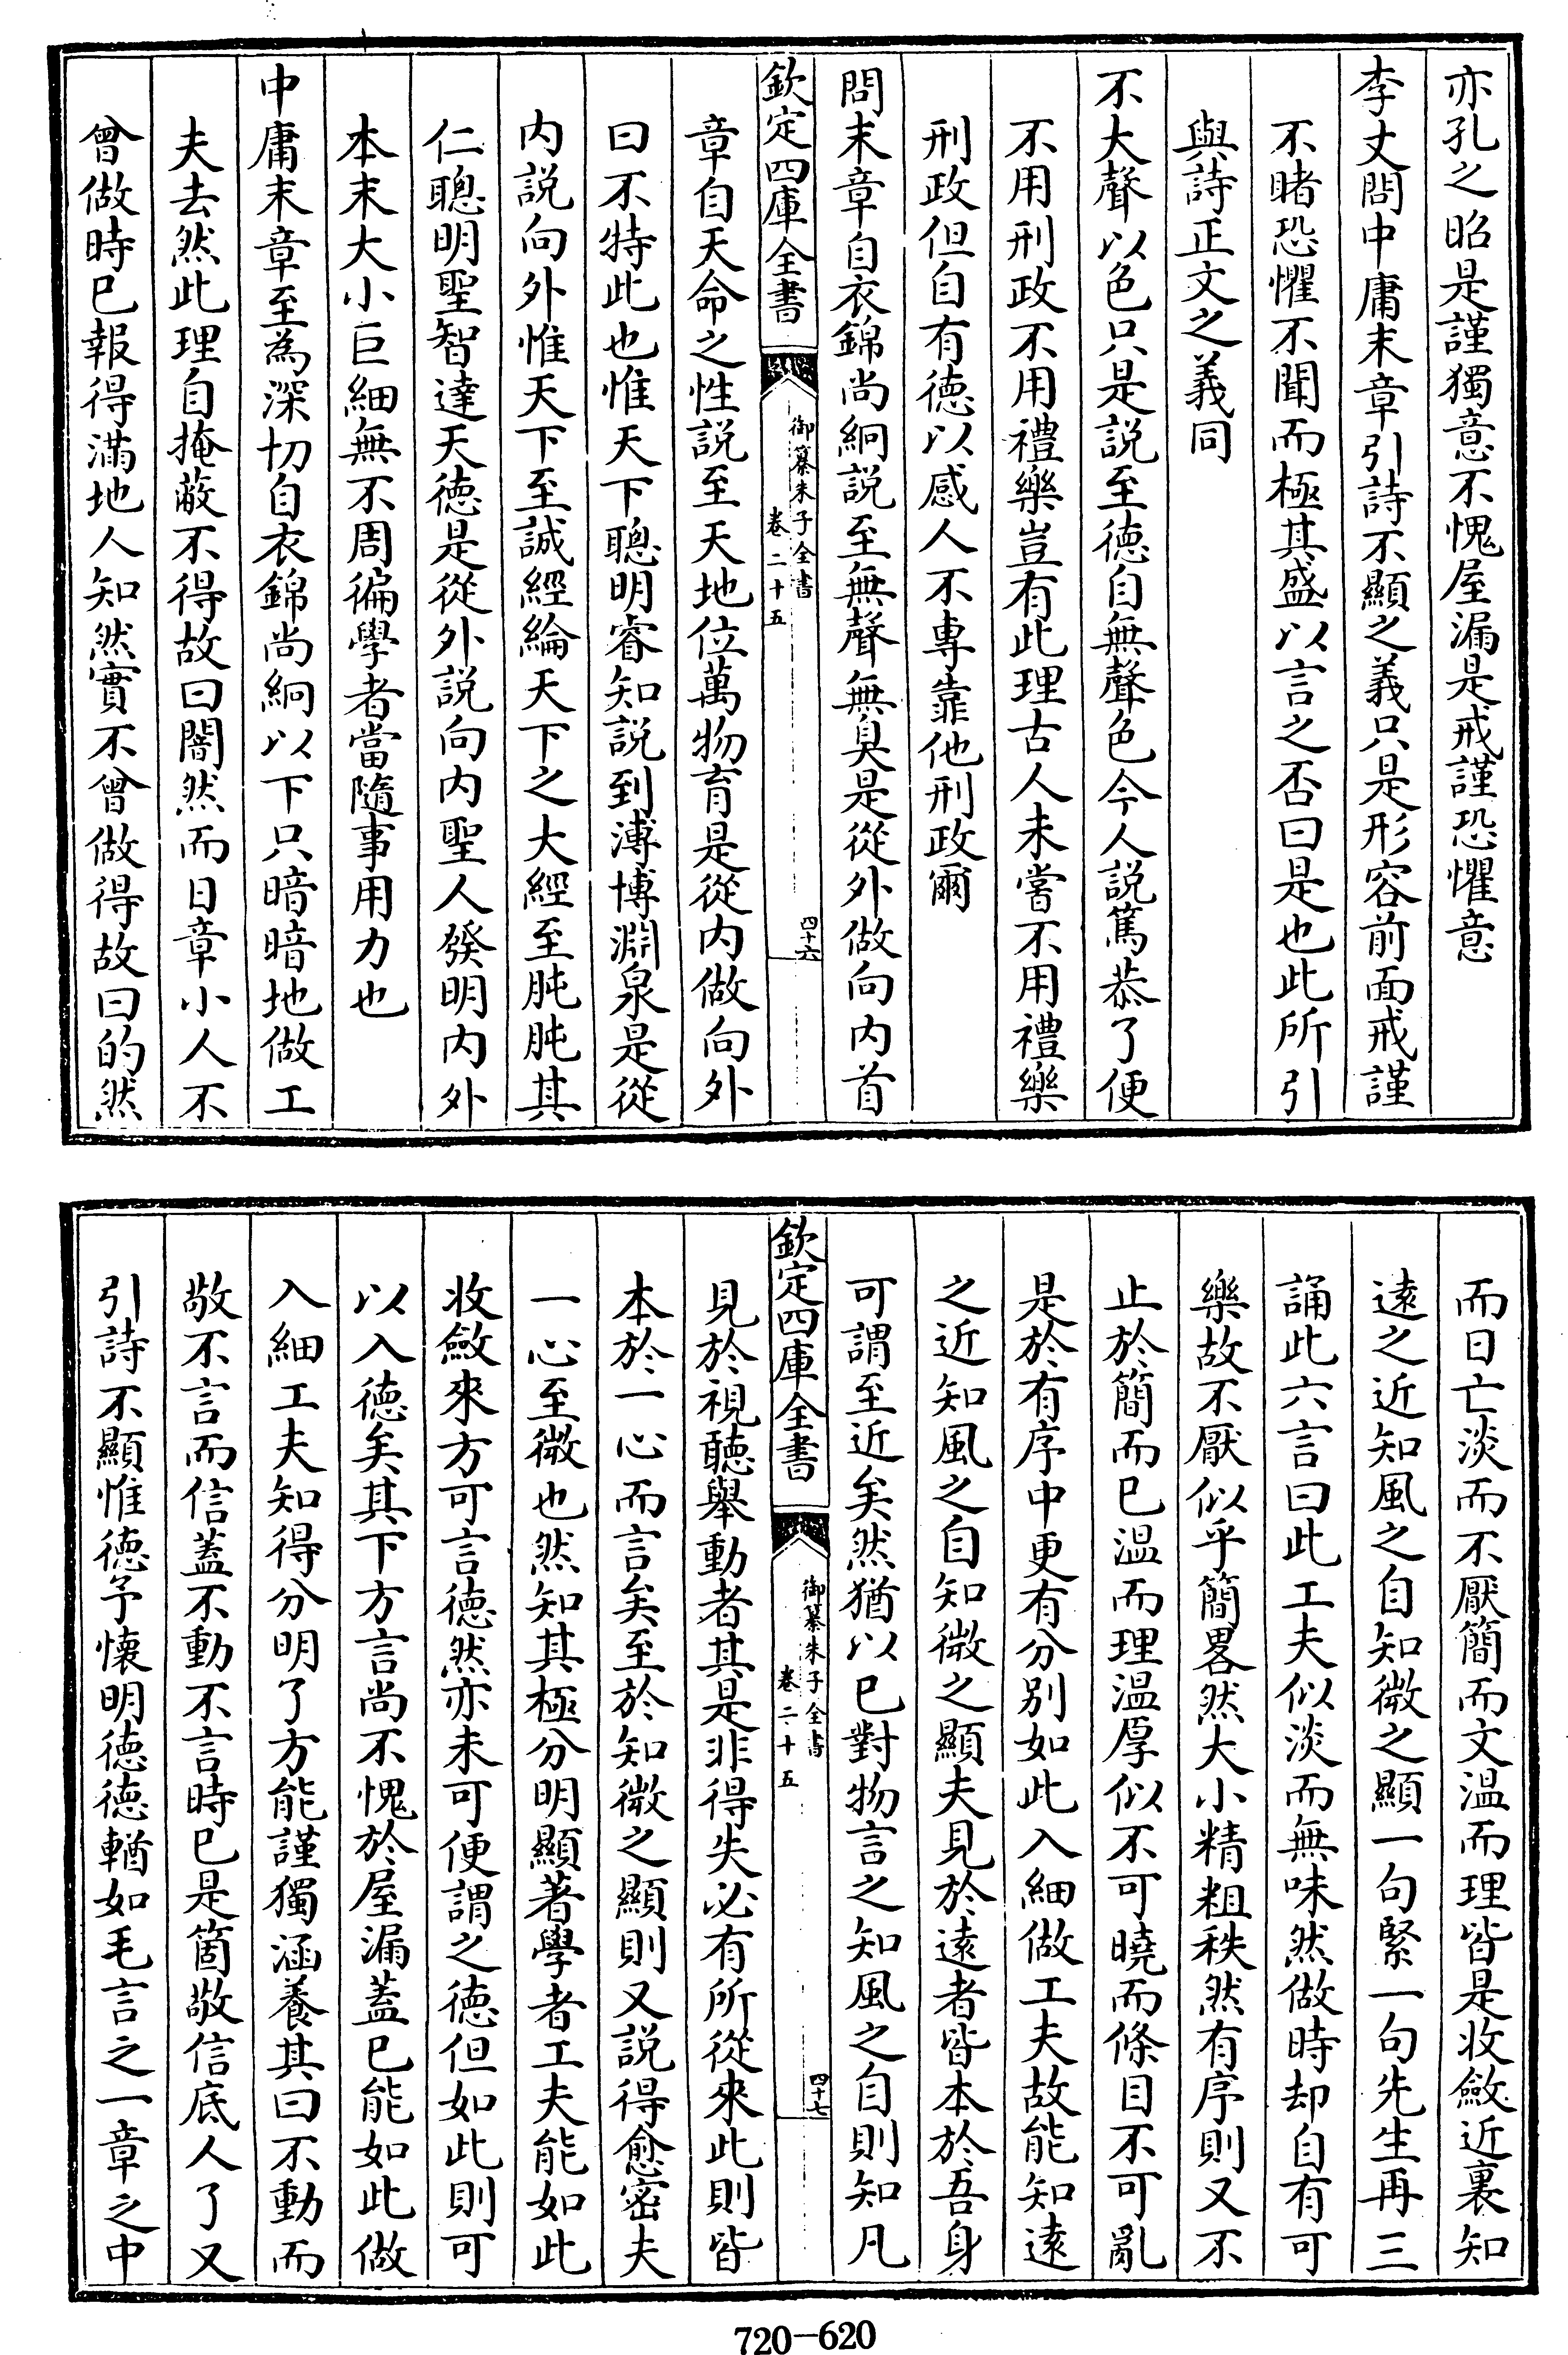 亦孔之昭是謹獨意不愧屋漏是戒謹恐懼意
李丈問中庸末章引詩不顯之義只是形容前面戒謹
不睹恐懼不聞而極其盛以言之否曰是也此所引
與詩正文之義同
不大聲以色只是説至德自無聲色今人説篤恭了便
不用刑政不用禮樂豈有此理古人未嘗不用禮樂
刑政但自有德以感人不專靠他刑政爾
問末章自衣錦尚絅説至無聲無臭是從外做向内首
欽定四庫全書
御纂朱子全書
卷二十五
四十六
章自天命之性説至天地位萬物育是從内做向外
曰不特此也惟天下聰明睿知説到溥博淵泉是從
内説向外惟天下至誠經綸天下之大經至肫肫其
仁聰明聖智達天德是從外説向内聖人發明内外
本末大小巨細無不周徧學者當隨事用力也
中庸末章至為深切自衣錦尚絅以下只暗暗地做工
夫去然此理自掩蔽不得故曰闇然而日章小人不
曾做時已報得滿地人知然實不曾做得故曰的然
而日亡淡而不厭簡而文温而理皆是收斂近裏知
遠之近知風之自知微之顯一句緊一句先生再三
誦此六言曰此工夫似淡而無味然做時却自有可
樂故不厭似乎簡畧然大小精粗秩然有序則又不
止於簡而已温而理温厚似不可曉而條目不可亂
是於有序中更有分别如此入細做工夫故能知遠
之近知風之自知微之顯夫見於遠者皆本於吾身
可謂至近矣然猶以已對物言之知風之自則知凡
欽定四庫全書
御纂朱子全書
卷二十五
四十七
見於視聽舉動者其是非得失必有所從來此則皆
本於一心而言矣至於知微之顯則又説得愈密夫
一心至微也然知其極分明顯著學者工夫能如此
收斂來方可言德然亦未可便謂之德但如此則可
以入德矣其下方言尚不愧於屋漏蓋已能如此做
入細工夫知得分明了方能謹獨涵養其曰不動而
敬不言而信蓋不動不言時已是箇敬信底人了又
引詩不顯惟德予懷明德德輶如毛言之一章之中
720-620